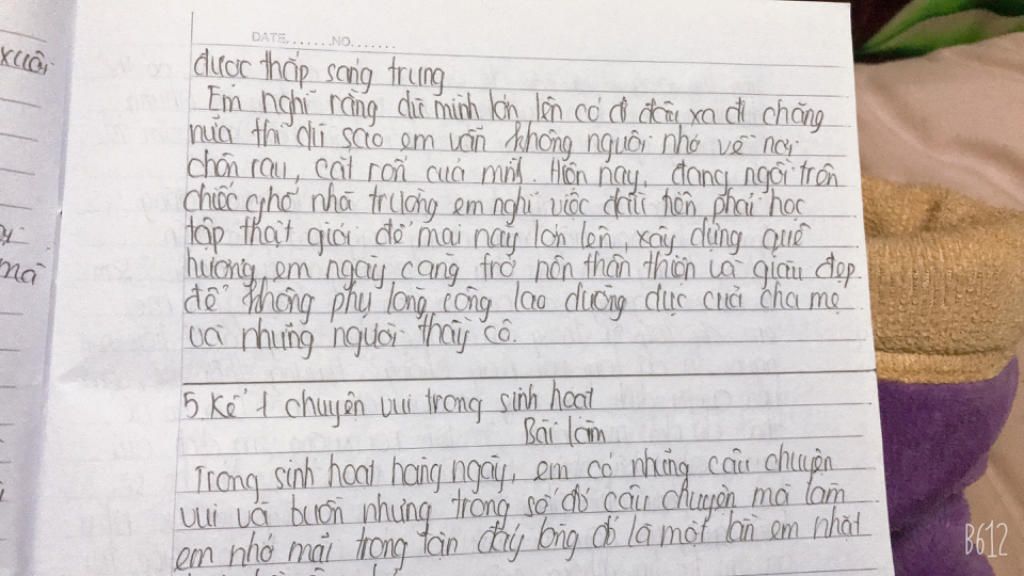 xuôi
DATE.......NO.......
được thắp sáng trưng
Em nghĩ rằng dù mình lớn lên có đi đâu xa đi chăng
nữa thì dù sao em vẫn không nguôi nhớ về nơi
chôn rau, cắt rốn của mình. Hiện nay, đang ngồi trên
chiếc ghế nhà trường em nghĩ việc đầu tiên phải học
tập thật giỏi để mai này lớn lên, xây dựng quê
hương em ngày càng trở nên thân thiện và giàu đẹp.
để không phụ lòng công lao dưỡng dục của cha mẹ
và những người thầy cô.
mà
5. Kể 1 chuyện vui trong sinh hoạt
Bài làm
Trong sinh hoạt hàng ngày, em có những câu chuyện
vui và buồn nhưng trong số đó câu chuyện mà làm
em nhớ mãi trong tận đáy lòng đó là một lần em nhặt
B612